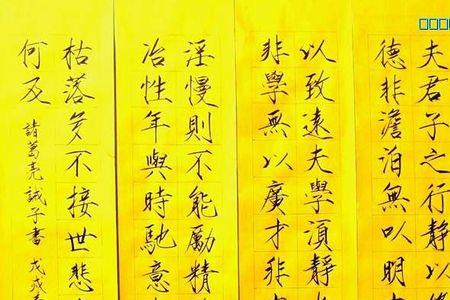 夫君子之行靜以
德非澹泊無以明
以致遠夫學須靜
非學無以廣才非
淫慢則不能勵精
冶性年與時馳意
枯落多不接世悲
何及 諸葛亮誡子書 戊戌